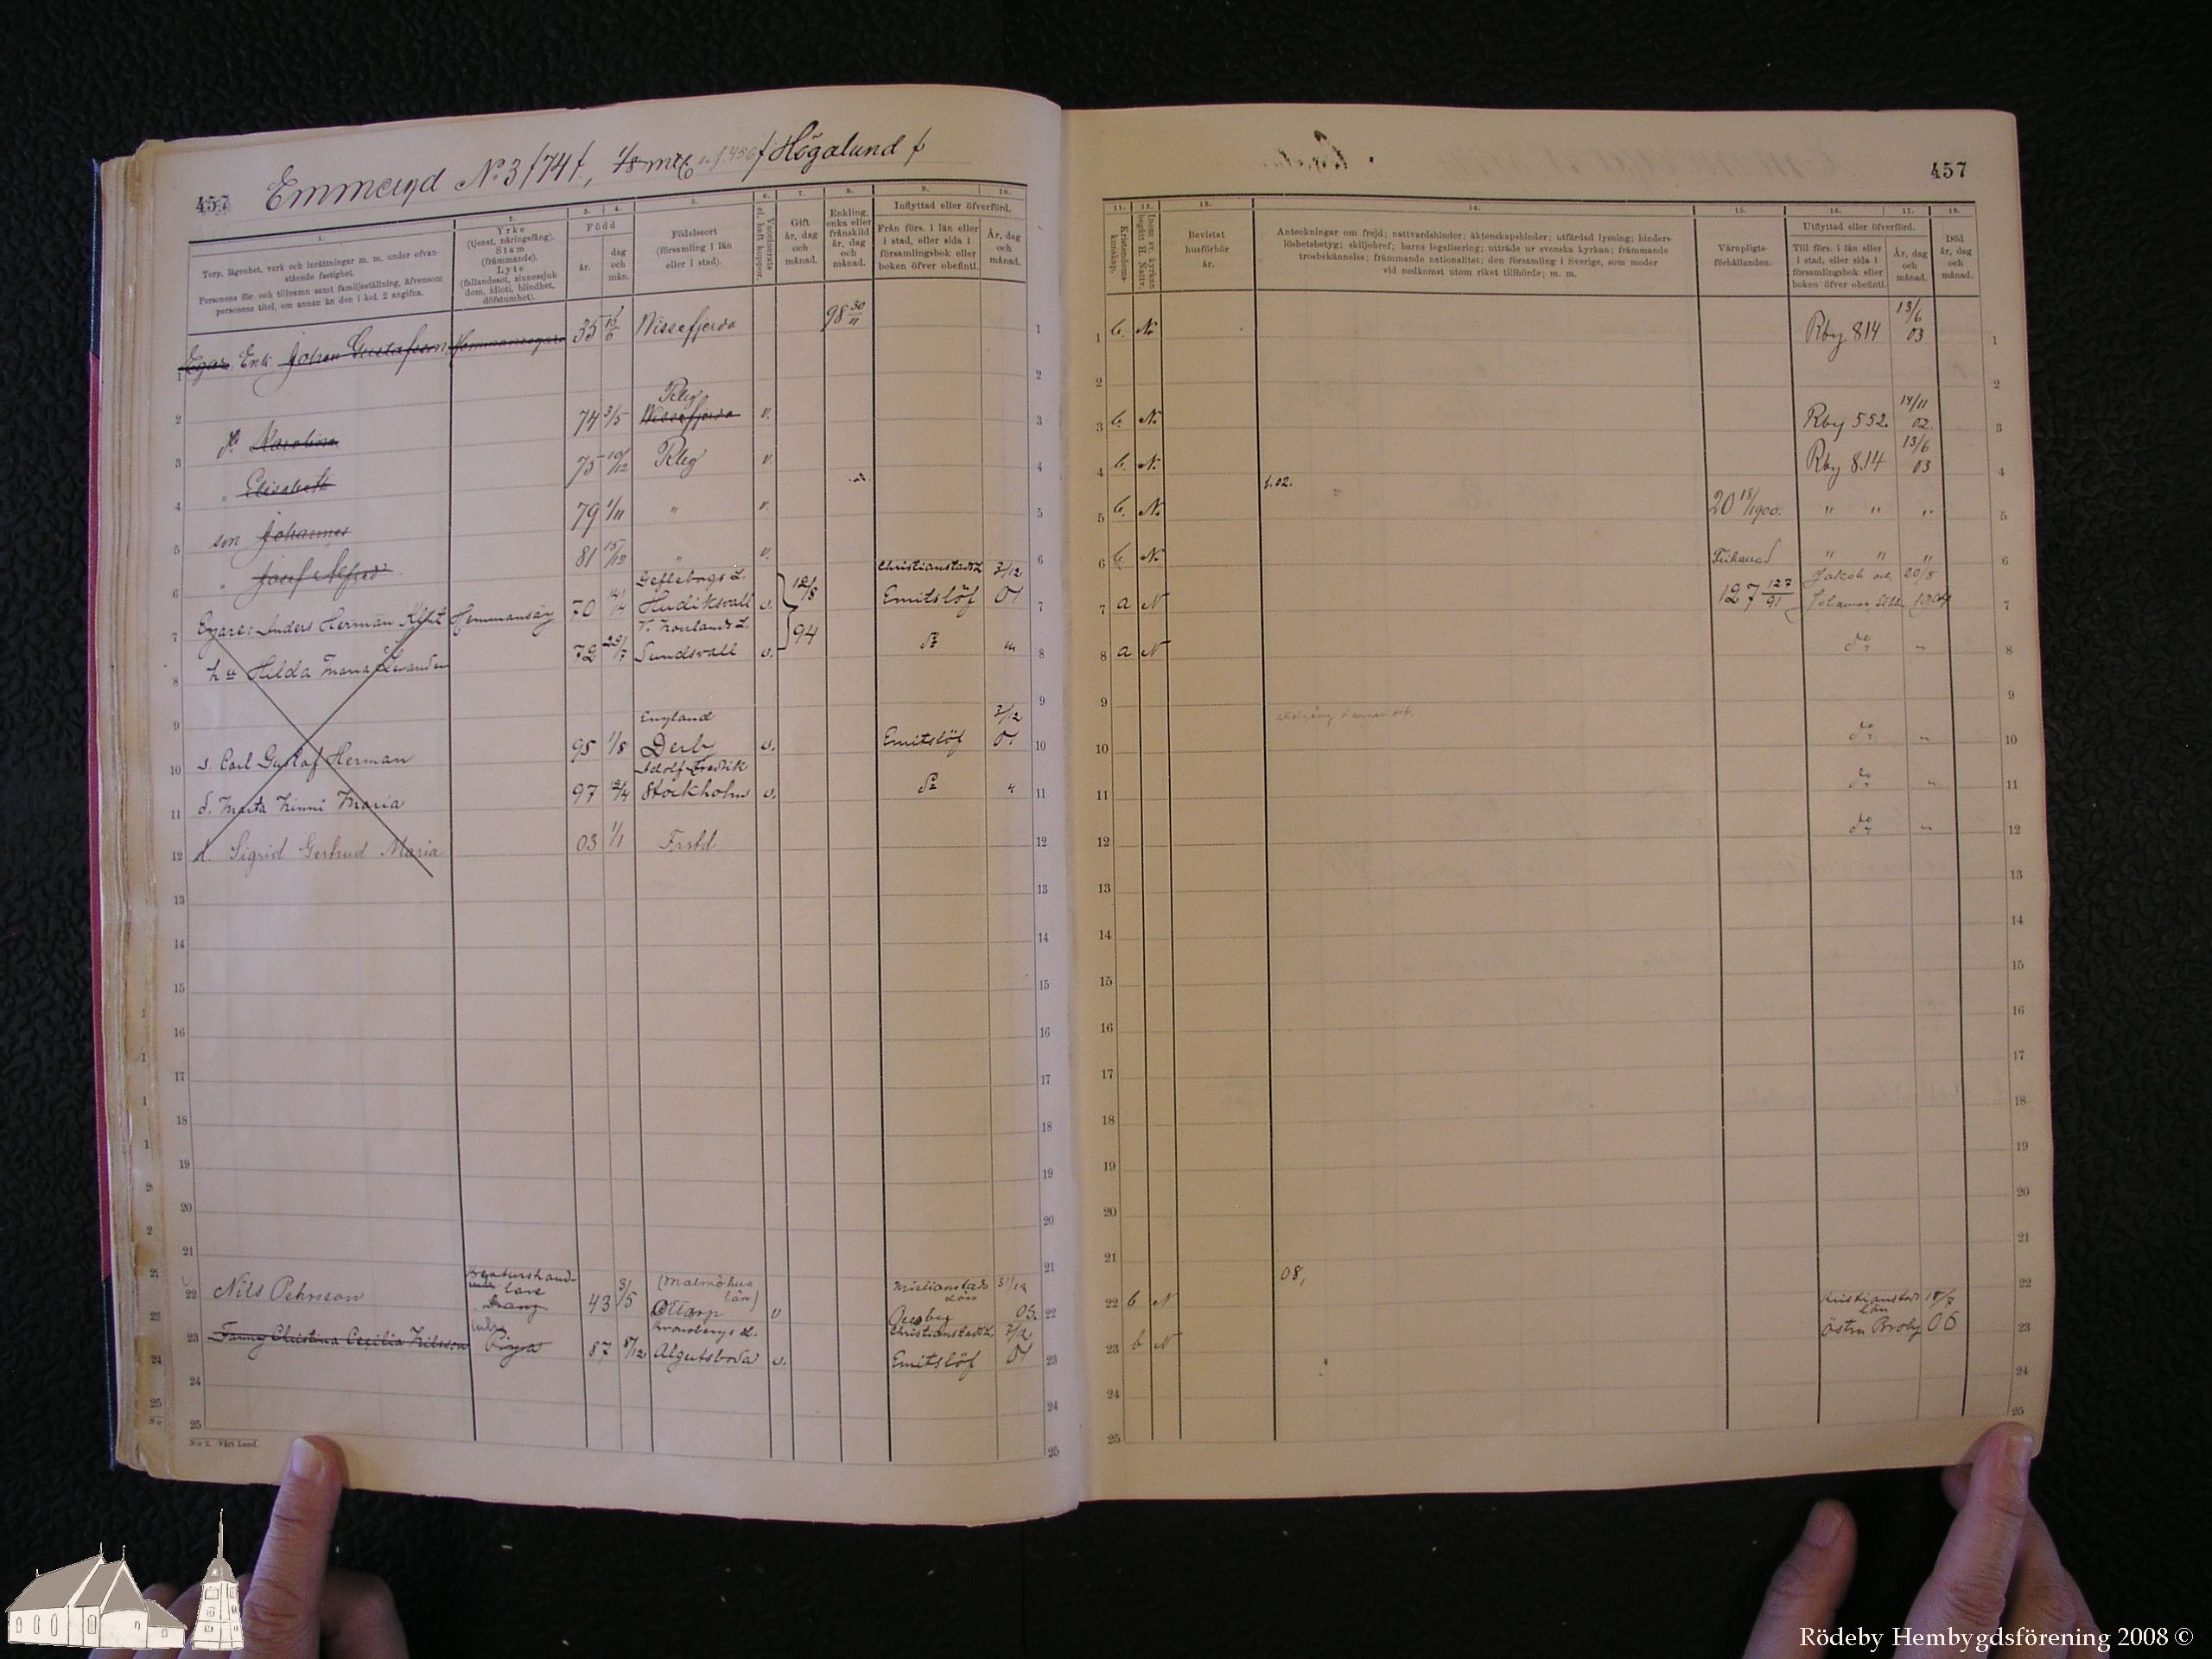 457 Emmeryd No 3 /74/, 1/8 mtl /Högalund/
1. 2. 3. 4. 5. 6. 7. 8. 9. 10.
Torp, lägenhet, verk och inrättningar m. m. under ofvanstående fastighet.
Personens för- och tillnamn samt familjeställning, äfvensom personens titel, om annan än den i kol. 2 angifna.
Yrke (tjenst, näringsfång). Stam (främmande). Lyte (fallandesot, sinnessjukdom, idioti, blindhet, döfstumhet).
Född
år. dag och mån.
Födelseort (församling i län eller i stad).
Vaccinerats el. haft koppor.
Gift år, dag och månad.
Enkling, enka eller frånskild år, dag och månad.
Inflyttad eller öfverförd.
Från förs. i län eller i stad, eller sida i församlingsbok eller boken öfver obefintl.
År, dag och månad.
1 Egar. Enk. Johan Gustafsson Hemmansegare 35 Wissefjerda 98 30/11
2
3 dr Karolina 74 3/5 Rbg Wissefjerda v.
4 " Elisabeth 75 Rbg v.
5 son Johannes 79 1/11 " v.
6 " Josef Alfred 81 15/12 " v.
7 Egare: Anders Herman Hemmansäg 70 14/4 Gefleborgs L. Hudiksvall v. 12/8 94 Christianstads L. Emitslöf 3/12 01
8 h u Hilda Maria 72 Sundsvall v. do "
9
10 s. Carl Gustaf Herman 95 1/8 England Derby v. Emitslöf 3/12 01
11 d. Marta Maria 97 Adolf Fredrik Stockholm v. do "
12 d. Sigrid Gertrud Maria 03 1/1 Frstd
13
14
15
16
17
18
19
20
21
22 Nils Pehrsson Kreaturshandlare Dräng 43 3/5 (Malmöhus län) v Kristianstads län 31/12 03.
23 Fanny Christina Cecilia Nilsson Piga 87 8/12 Kronobergs L. Algutsboda v. Christianstads L. Emitslöf 3/12 01
24
25
N:o 2. Vårt Land.
457
11. 12. 13. 14. 15. 16. 17. 18.
Kristendomskunskap.
Inom sv. kyrkan begått H. Nattv.
Bevistat husförhör år.
Anteckningar om frejd; nattvardshinder; äktenskapshinder; utfärdad lysning; hinderslöshetsbetyg; skiljobref; barns legalisering; utträde ur svenska kyrkan; främmande trosbekännelse; främmande nationalitet; den församling i Sverige, som moder vid nedkomst utom riket tillhörde; m. m.
Värnpligtsförhållanden.
Utflyttad eller öfverförd.
Till förs. i län eller i stad, eller sida i församlingsbok eller boken öfver obefintl.
År, dag och månad.
Död år, dag och månad.
1 b. N. Rby 814 13/6 03
2
3 b. N. Rby 552. 14/11 02.
4 b. N. Rby 814 13/6 03
5 b. N. f. 02. 20 18/1900. " " "
6 b. N. Frikänd " " "
7 a N 127 127/91 Jakob och Johannes, Sthlm 20/8 1904
8 a N do "
9
10 do "
11 do "
12 do "
13
14
15
16
17
18
19
20
21
22 b N 08, Kristianstads län Östra Broby 18/7 06
23 b N
24
25
Rödeby Hembygdsförening 2008 ©